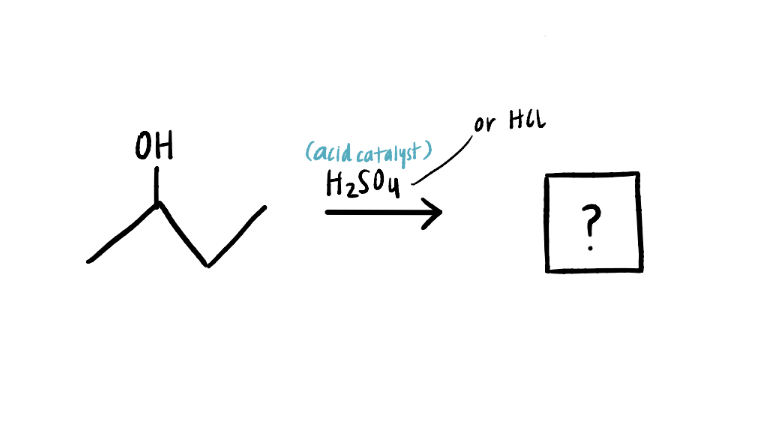 OH
(acid catalyst)
H₂SO₄
or HCl
?